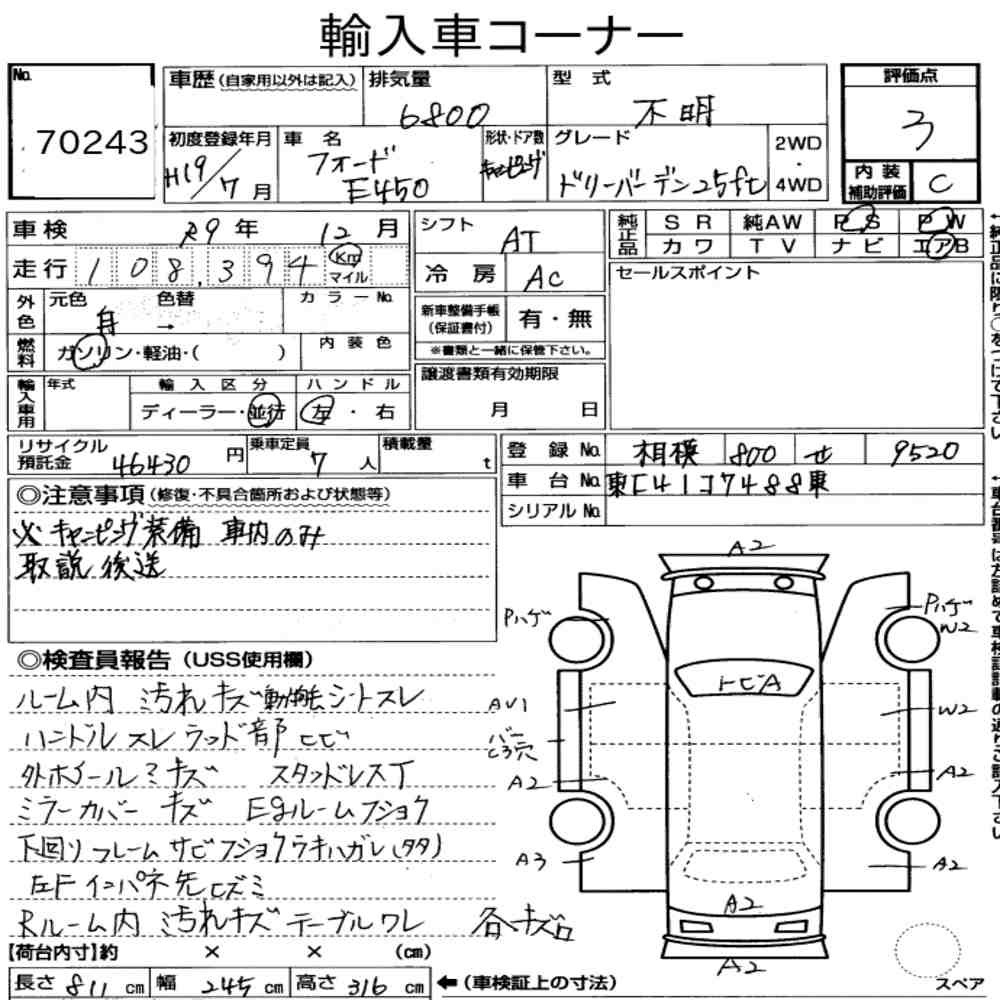 輸入車コーナー
No.
70243
車歴(自家用以外は記入)
排気量
6800
型式
不明
評価点
3
初度登録年月
H19/7月
車名
フォード
E450
形状・ドア数
キャンピング
グレード
ドリーバーデン25ft
2WD
・
4WD
内装
補助評価
C
車検 R9年 12月
シフト
AT
純正品
SR 純AW PS PW
カワ TV ナビ エアB
走行 108,394 Km マイル
冷房 AC
セールスポイント
外色
元色 色替 カラーNo.
白 →
新車整備手帳
(保証書付)
有・無
※書類と一緒に保管下さい。
燃料
ガソリン・軽油・( )
内装色
譲渡書類有効期限
月 日
輸入車用
年式 輸入区分 ハンドル
ディーラー・並行 左・右
リサイクル
預託金 46430円
乗車定員
7人
積載量
t
登録No. 相模 800 せ 9520
車台No. 東[41]7488東
シリアルNo.
◎注意事項(修復・不具合箇所および状態等)
※キャンピング装備 車内のみ
取説後送
◎検査員報告(USS使用欄)
ルーム内 汚れキズ シートスレ
ハンドルスレ ラッド部ヒビ
外ホイールミキズ スタンドレスT
ミラーカバーキズ Egルームフショク
下回りフレームサビフショクラキハガレ(タタ)
左Fインパネ先ヒズミ
Rルーム内 汚れキズ テーブルワレ 各キズ
A2
Pハゲ
Pハゲ
W2
トビA
AV1
W2
バー
ところ穴
A2
A2
A3
A2
A2
A2
スペア
【荷台内寸】約 × × (cm)
長さ 811 cm 幅 245 cm 高さ 316 cm ←(車検証上の寸法)